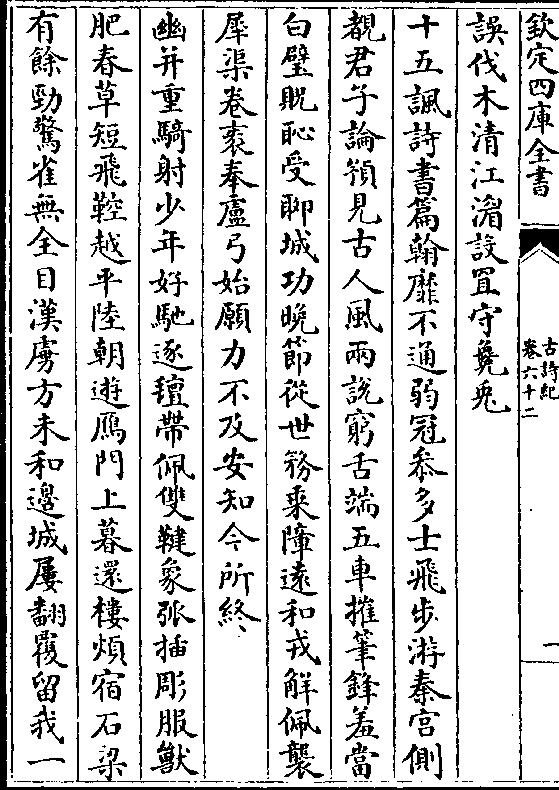 欽定四庫全書
古詩紀
卷六十二
一
誤伐木清江湄設罝守毚兎
十五諷詩書篇翰靡不通弱冠叅多士飛步游秦宫側
覩君子論預見古人風兩說窮舌端五車摧筆鋒羞當
白璧貺恥受聊城功晚節從世務乗障遠和戎解佩襲
犀渠卷袠奉盧弓始願力不及安知今所終
幽并重騎射少年好馳逐氊帶佩雙鞬象弧插彫服獸
肥春草短飛鞚越平陸朝遊鴈門上暮還樓煩宿石梁
有餘勁驚雀無全目漢虜方未和邊城屢翻覆留我一